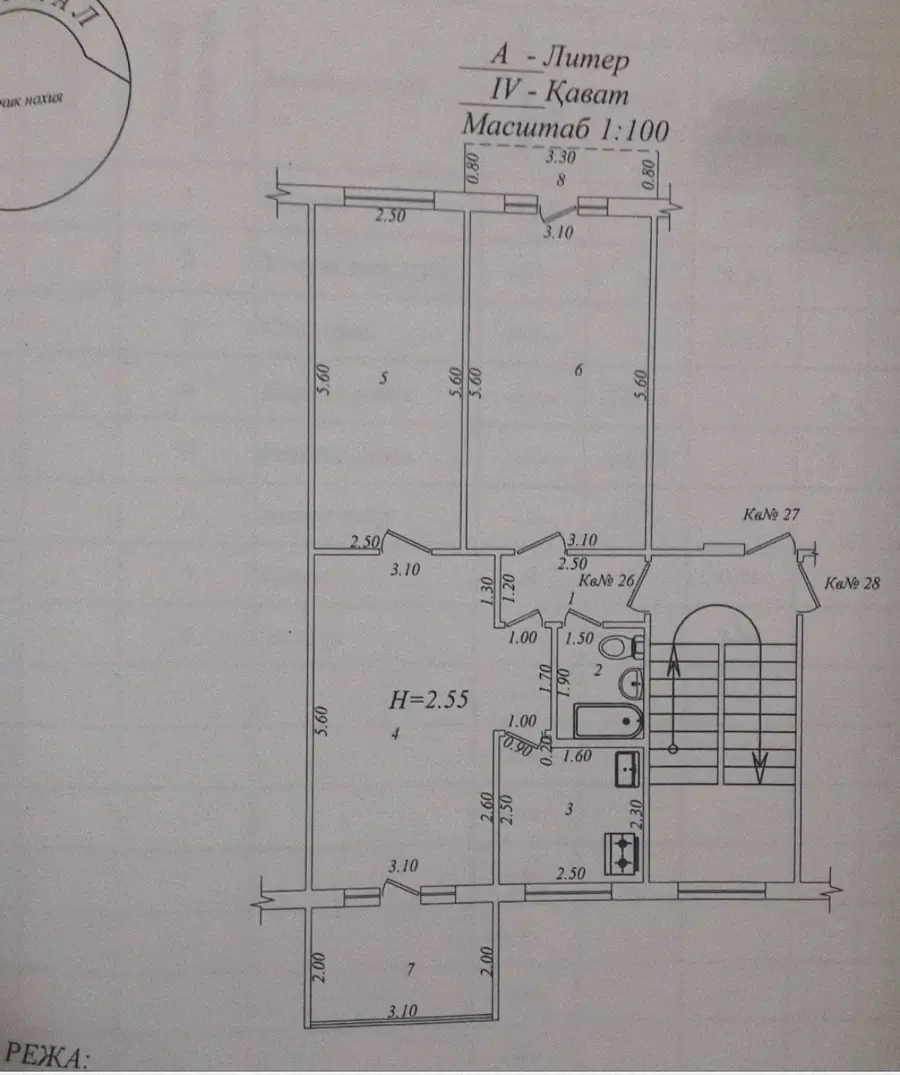 А - Литер
IV - Қават
Масштаб 1:100
нохия
0.80
3.30
0.80
8
2.50
3.10
5.60
5
5.60
5.60
6
5.60
Кв№ 27
2.50
3.10
3.10
2.50
Кв№ 26
Кв№ 28
1.30
1.20
1
1.00
1.50
2
1.70
1.90
Н=2.55
5.60
4
1.00
0.90
0.20
1.60
2.60
2.50
3
2.30
3.10
2.50
2.00
7
2.00
3.10
РЕЖА: